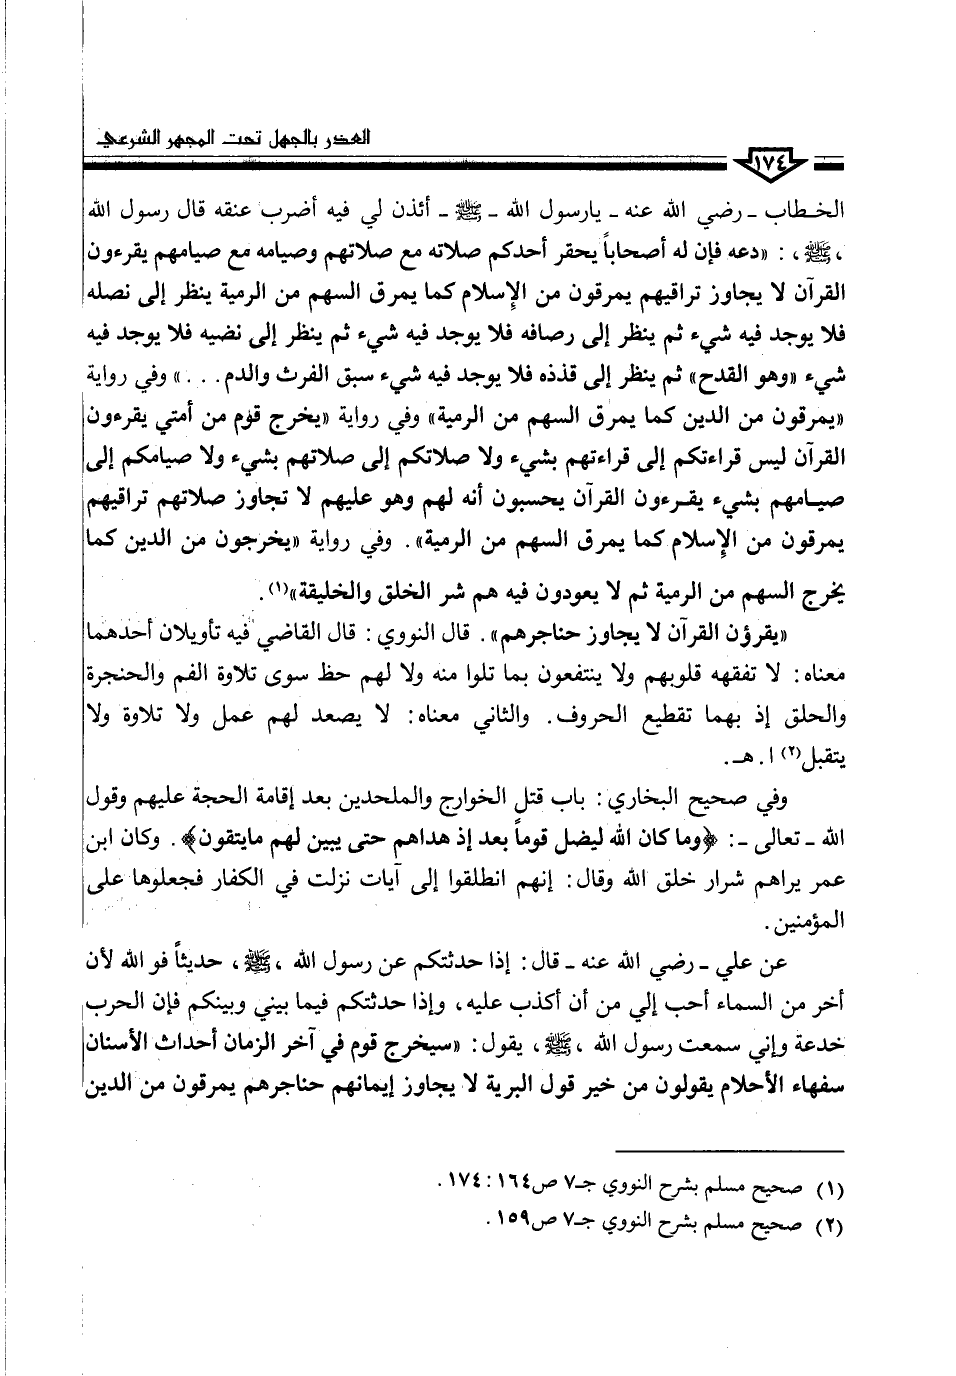 العذر بالجهل تحت المجهر الشرعي
١٧٤
الخطاب ـ رضي الله عنه ـ يارسول الله ـ ﷺ ـ أئذن لي فيه أضرب عنقه قال رسول الله
، ﷺ ، : «دعه فإن له أصحاباً يحقر أحدكم صلاته مع صلاتهم وصيامه مع صيامهم يقرءون
القرآن لا يجاوز تراقيهم يمرقون من الإسلام كما يمرق السهم من الرمية ينظر إلى نصله
فلا يوجد فيه شيء ثم ينظر إلى رصافه فلا يوجد فيه شيء ثم ينظر إلى نضيه فلا يوجد فيه
شيء «وهو القدح» ثم ينظر إلى قذذه فلا يوجد فيه شيء سبق الفرث والدم. . .» وفي رواية
«يمرقون من الدين كما يمرق السهم من الرمية» وفي رواية «يخرج قوم من أمتي يقرءون
القرآن ليس قراءتكم إلى قراءتهم بشيء ولا صلاتكم إلى صلاتهم بشيء ولا صيامكم إلى
صيامهم بشيء يقرءون القرآن يحسبون أنه لهم وهو عليهم لا تجاوز صلاتهم تراقيهم
يمرقون من الإسلام كما يمرق السهم من الرمية». وفي رواية «يخرجون من الدين كما
يخرج السهم من الرمية ثم لا يعودون فيه هم شر الخلق والخليقة»(١).
«يقرؤن القرآن لا يجاوز حناجرهم». قال النووي: قال القاضي فيه تأويلان أحدهما
معناه: لا تفقهه قلوبهم ولا ينتفعون بما تلوا منه ولا لهم حظ سوى تلاوة الفم والحنجرة
والحلق إذ بهما تقطيع الحروف. والثاني معناه: لا يصعد لهم عمل ولا تلاوة ولا
يتقبل(٢) ا. هـ.
وفي صحيح البخاري: باب قتل الخوارج والملحدين بعد إقامة الحجة عليهم وقول
الله ـ تعالى ـ: ﴿وما كان الله ليضل قوماً بعد إذ هداهم حتى يبين لهم مايتقون﴾. وكان ابن
عمر يراهم شرار خلق الله وقال: إنهم انطلقوا إلى آيات نزلت في الكفار فجعلوها على
المؤمنين.
عن علي ـ رضي الله عنه ـ قال: إذا حدثتكم عن رسول الله ، ﷺ ، حديثاً فو الله لأن
أخر من السماء أحب إلي من أن أكذب عليه، وإذا حدثتكم فيما بيني وبينكم فإن الحرب
خدعة وإني سمعت رسول الله ، ﷺ ، يقول: «سيخرج قوم في آخر الزمان أحداث الأسنان
سفهاء الأحلام يقولون من خير قول البرية لا يجاوز إيمانهم حناجرهم يمرقون من الدين
(١) صحيح مسلم بشرح النووي جـ٧ ص١٦٤: ١٧٤.
(٢) صحيح مسلم بشرح النووي جـ٧ ص١٥٩.